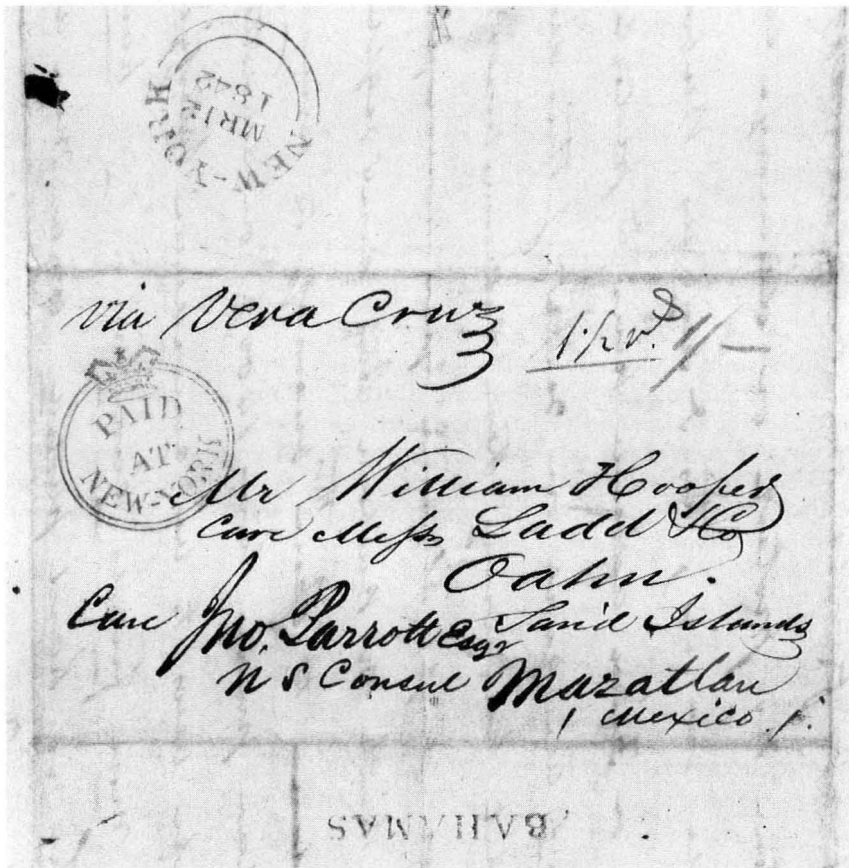 NEW-YORK
MR12
1842
via Vera Cruz
1/-
PAID
AT
NEW-YORK
Mr William Hooper
Care Messrs Ladd & Co
Oahu.
Sand Islands
Care Jno. Parrott Esqr
U S Consul Mazatlan
Mexico
BAHAMAS